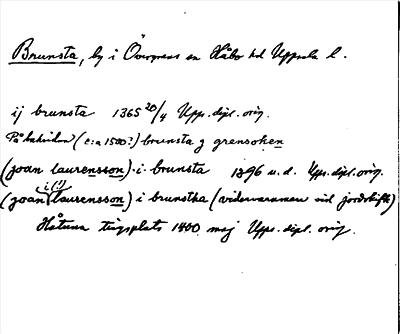 Brunsta, by i Övergrans sn Håbo hd Uppsala l.
ij brunsta 1365 20/4 Upps. dipl. orig.
På baksidan (c:a 1500?) brunsta j grensoken
(joan laurensson) i brunsta 1396 u.d. Upps. dipl. orig.
i (!)
(joan laurensson) i brunstha (vidervaraman vid jordskifte)
Håtuna tingsplats 1400 maj Upps. dipl. orig.